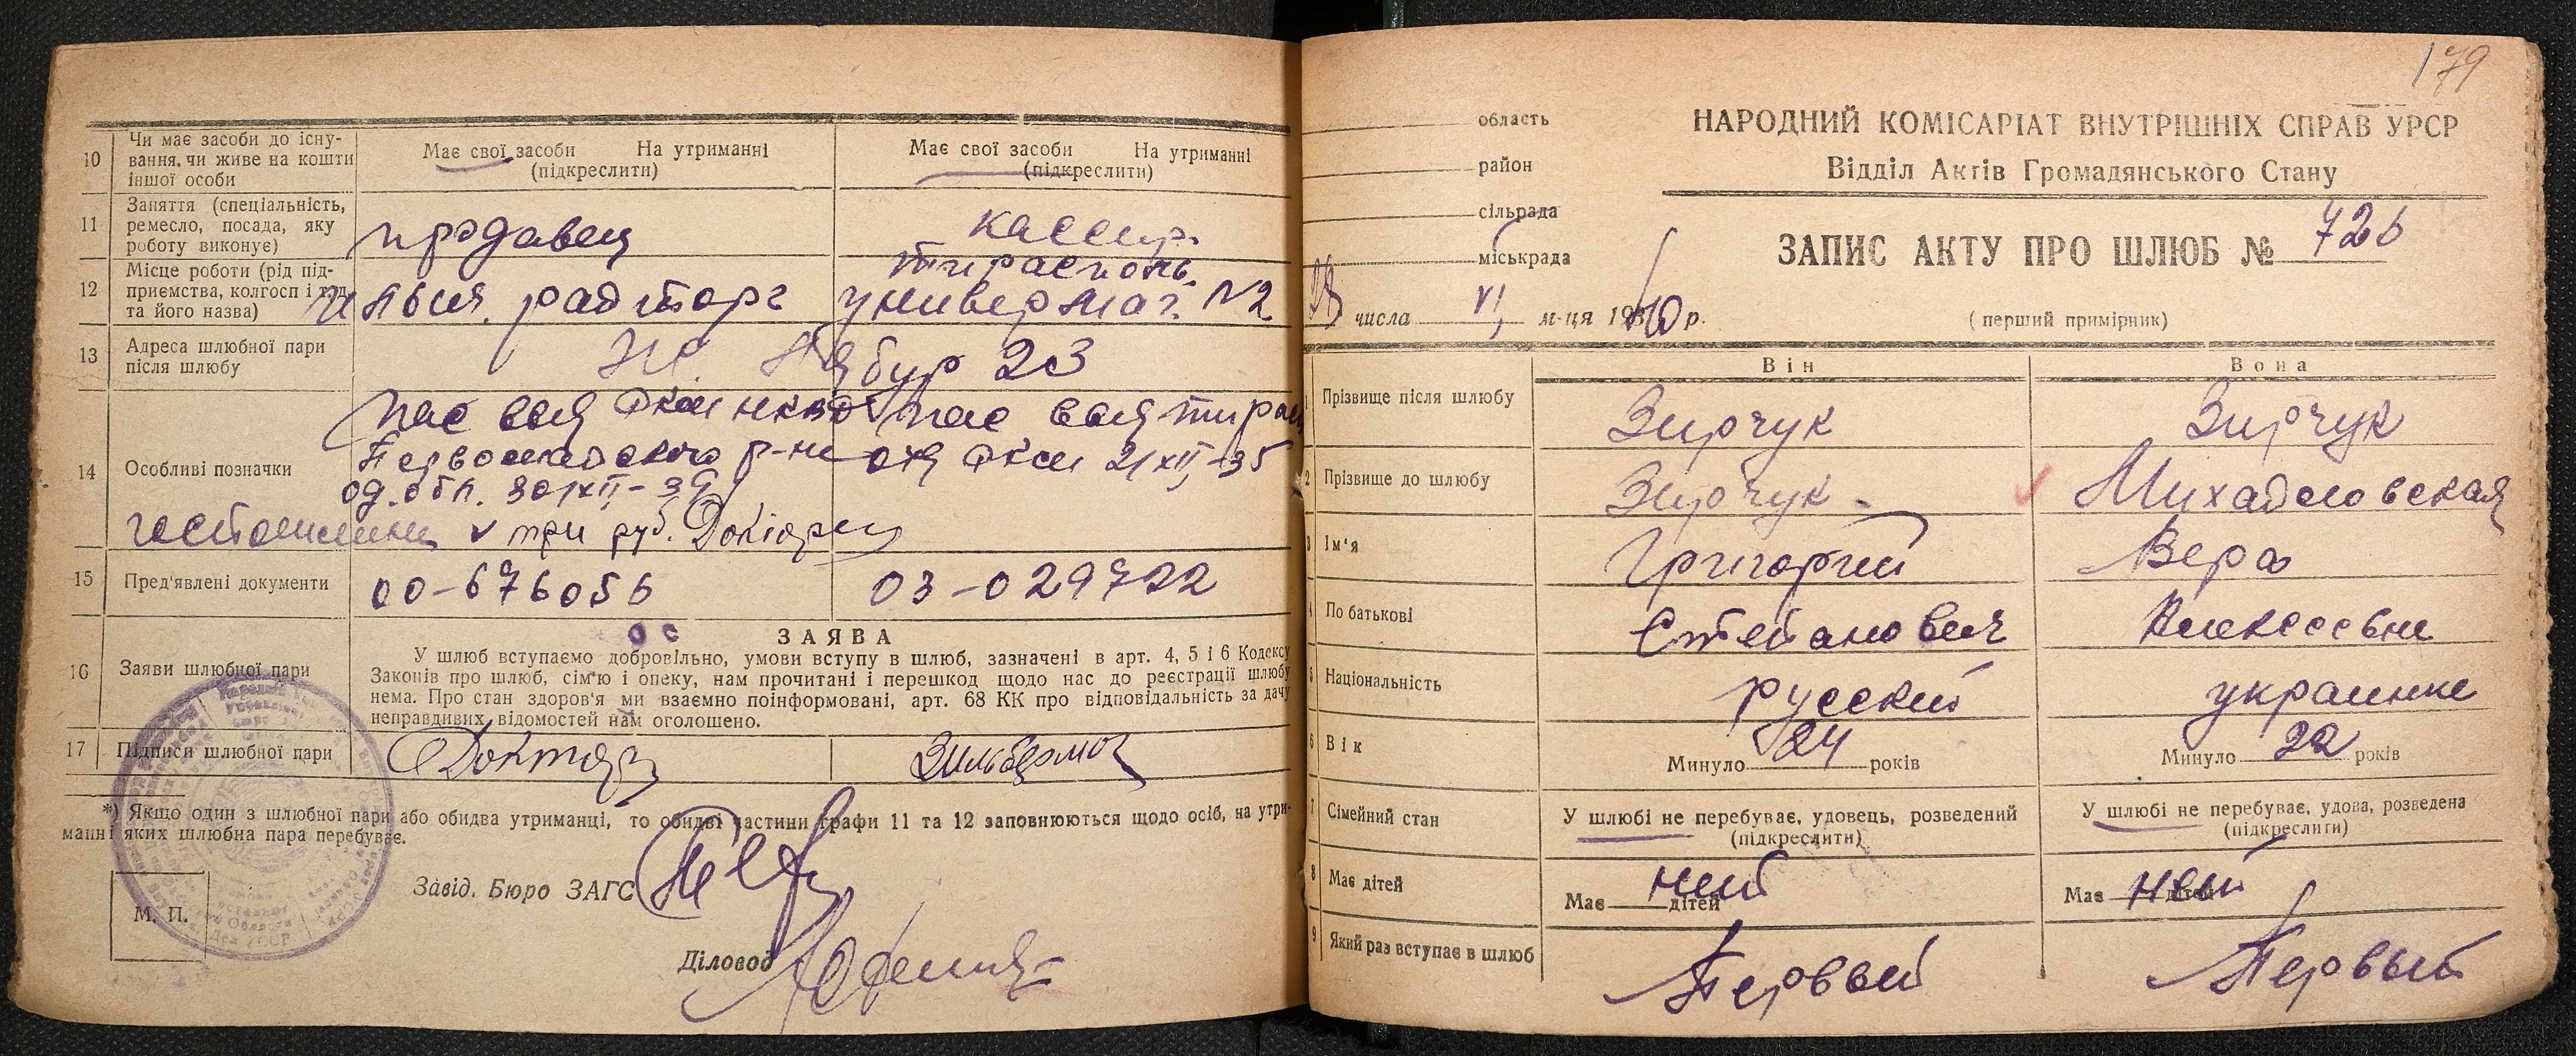 10
Чи має засоби до існування, чи живе на кошти іншої особи
Має свої засоби На утриманні
(підкреслити)
Має свої засоби На утриманні
(підкреслити)
11
Заняття (спеціальність, ремесло, посада, яку роботу виконує)
продавец
кассир.
12
Місце роботи (рід підприємства, колгосп і т. д. та його назва)
раймторг
тирасполь.
универмаг. N2
13
Адреса шлюбної пари після шлюбу
23
14
Особливі позначки
пас выд РКМ
Первомайского р-на
од. обл. 30/XII-39
пас выд тирасп
РКМ 21/XII-35
три руб.
15
Пред'явлені документи
00-676056
03-029722
16
Заяви шлюбної пари
ЗАЯВА
У шлюб вступаємо добровільно, умови вступу в шлюб, зазначені в арт. 4, 5 і 6 Кодексу
Законів про шлюб, сім'ю і опеку, нам прочитані і перешкод щодо нас до реєстрації шлюбу
нема. Про стан здоров'я ми взаємно поінформовані, арт. 68 КК про відповідальність за дачу
неправдивих відомостей нам оголошено.
17
Підписи шлюбної пари
*) Якщо один з шлюбної пари або обидва утриманці, то обидві частини графи 11 та 12 заповнюються щодо осіб, на утри-
манні яких шлюбна пара перебуває.
М. П.
Завід. Бюро ЗАГС
Діловод
179
область
район
сільрада
міськрада
НАРОДНИЙ КОМІСАРІАТ ВНУТРІШНІХ СПРАВ УРСР
Відділ Актів Громадянського Стану
ЗАПИС АКТУ ПРО ШЛЮБ № 726
числа VI м-ця 1940 р.
(перший примірник)
Він
Вона
1
Прізвище після шлюбу
Зирчук
Зирчук
2
Прізвище до шлюбу
Зирчук
Михайловская
3
Ім'я
Григорий
Вера
4
По батькові
Степанович
Алексеевна
5
Національність
русский
украинка
6
Вік
Минуло 24 років
Минуло 22 років
7
Сімейний стан
У шлюбі не перебуває, удовець, розведений
(підкреслити)
У шлюбі не перебуває, удова, розведена
(підкреслити)
8
Має дітей
Має нет дітей
Має нет дітей
9
Який раз вступає в шлюб
Первый
Первый